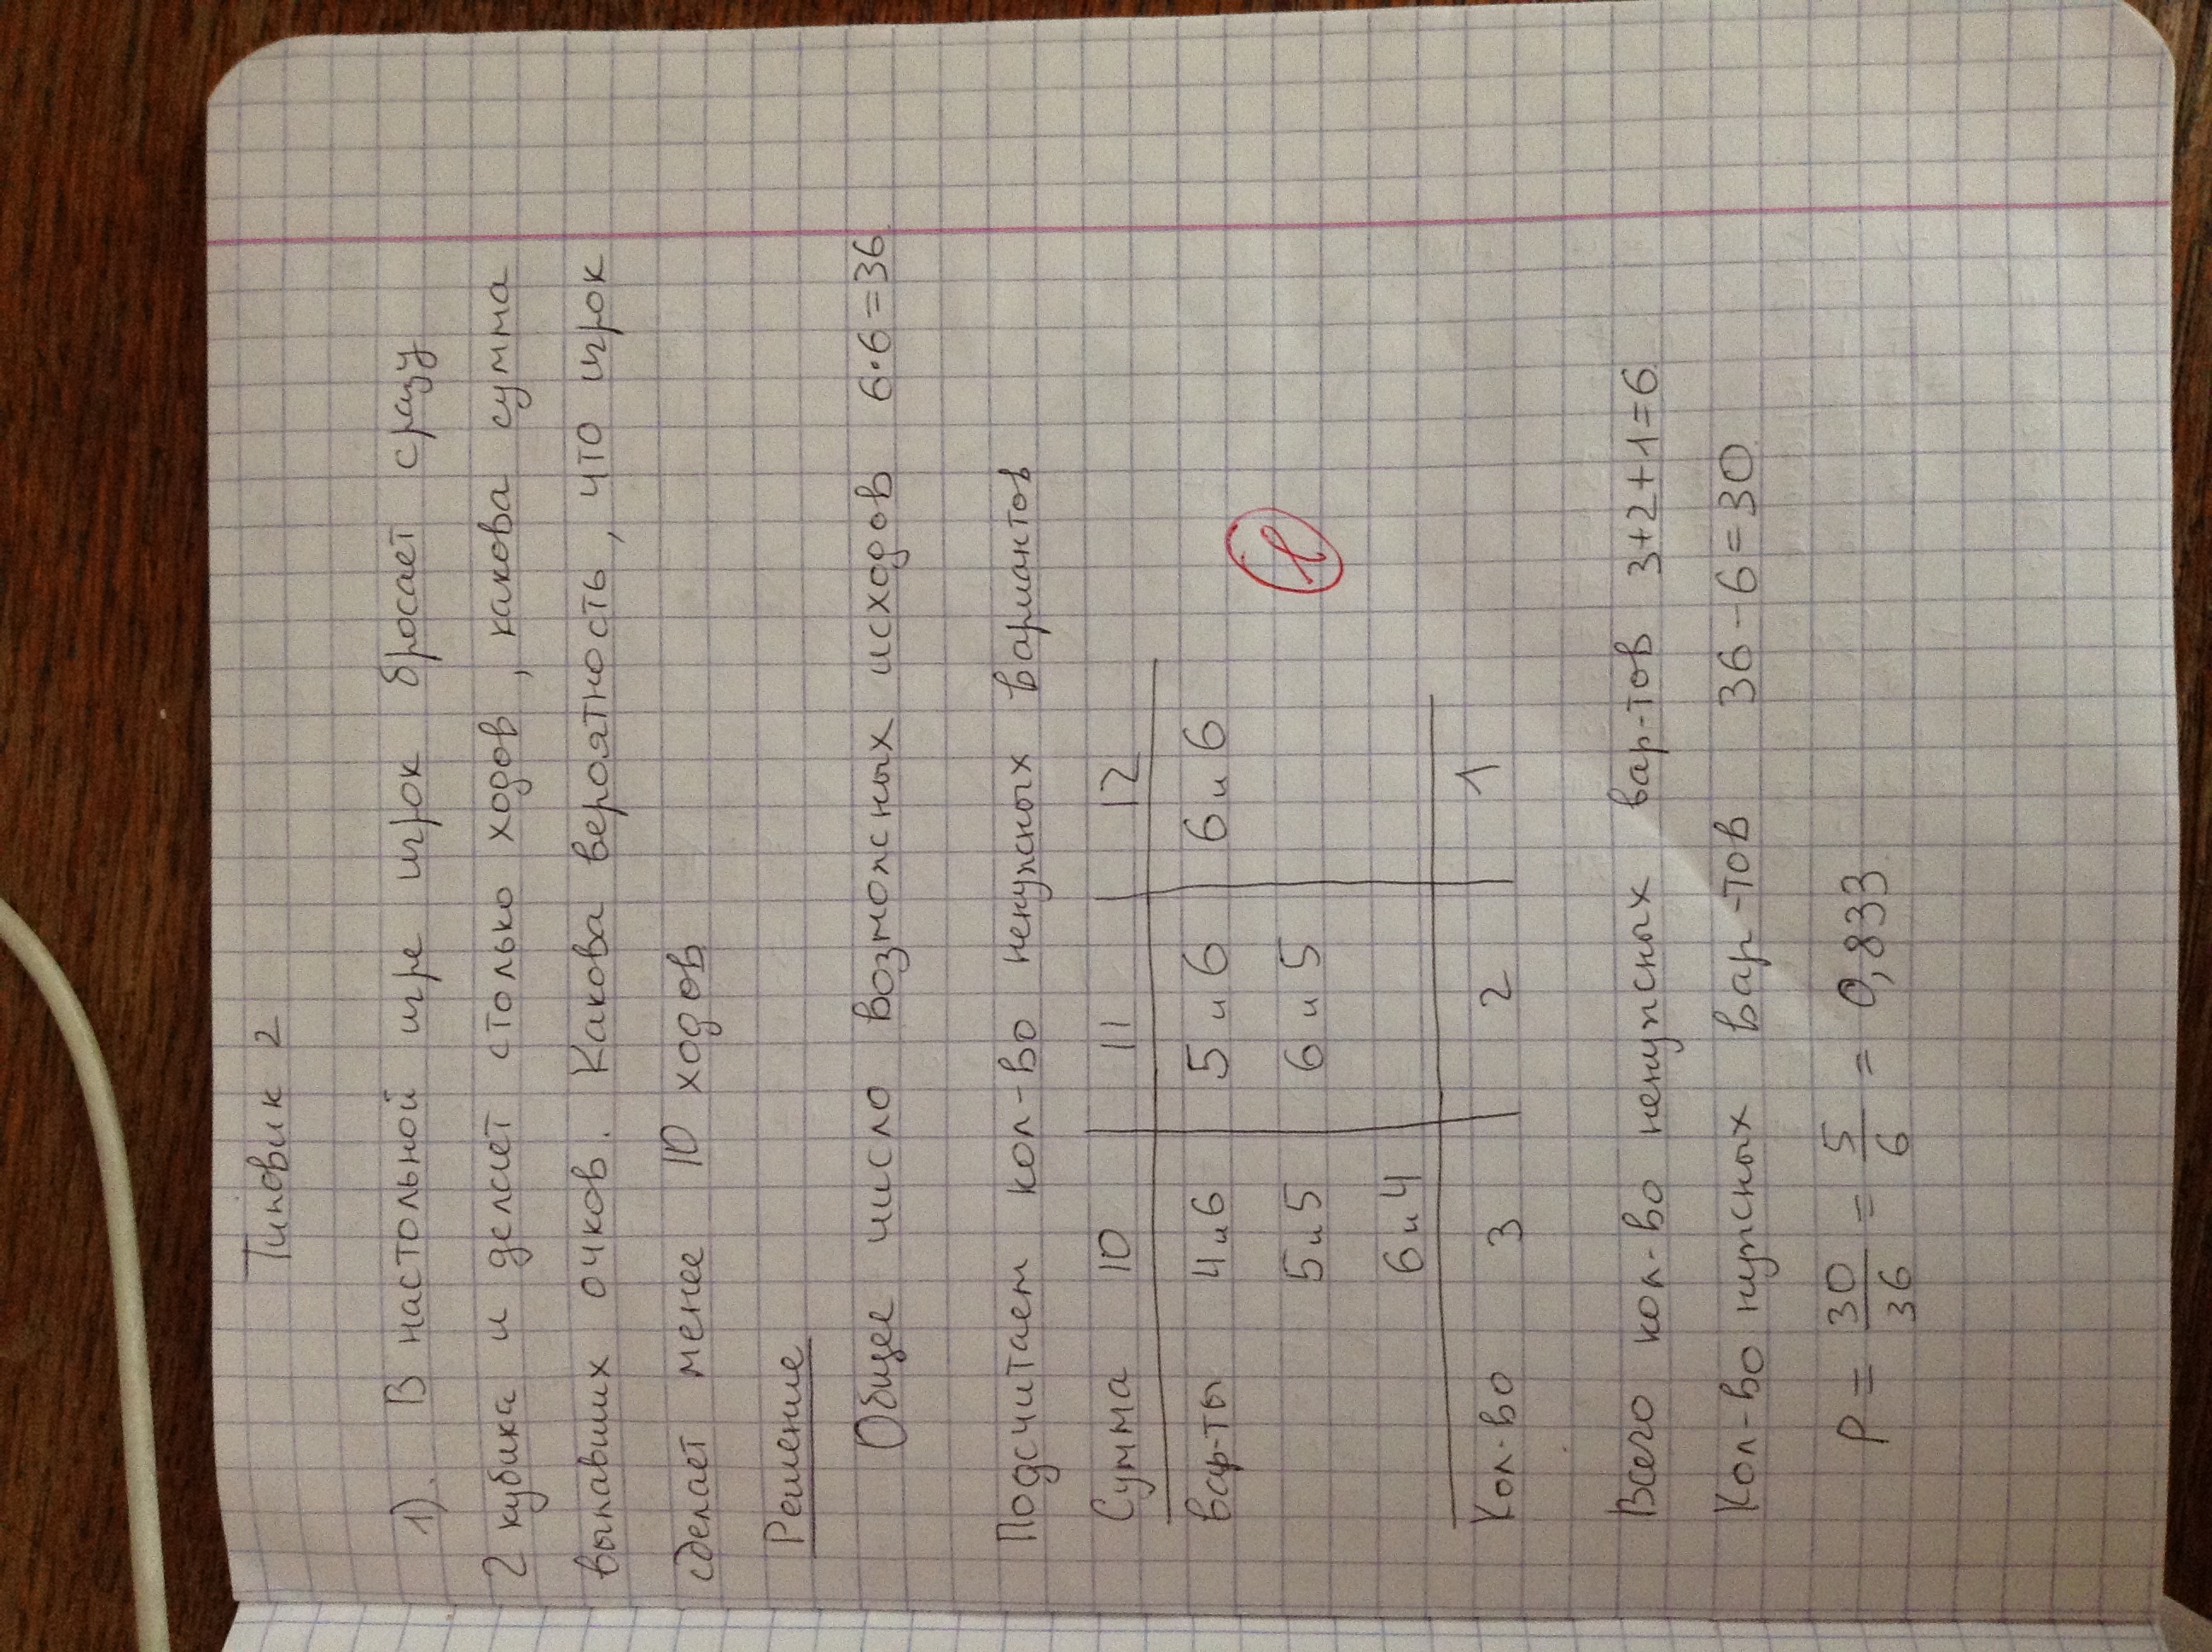 Типовик 2
1). В настольной игре игрок бросает сразу
2 кубика и делает столько ходов, какова сумма
выпавших очков. Какова вероятность, что игрок
сделает менее 10 ходов
Решение
Общее число возможных исходов 6·6=36
Подсчитаем кол-во ненужных вариантов
Сумма 10 11 12
вар-ты 4и6 5 и 6 6 и 6
5и5 6 и 5
6и4
Кол-во 3 2 1
Всего кол-во ненужных вар-тов 3+2+1=6
Кол-во нужных вар-тов 36-6=30
P = 30/36 = 5/6 = 0,833